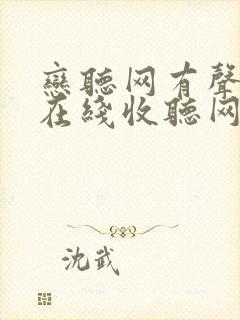 戀聽网有聲
在綫收聽网
沈武